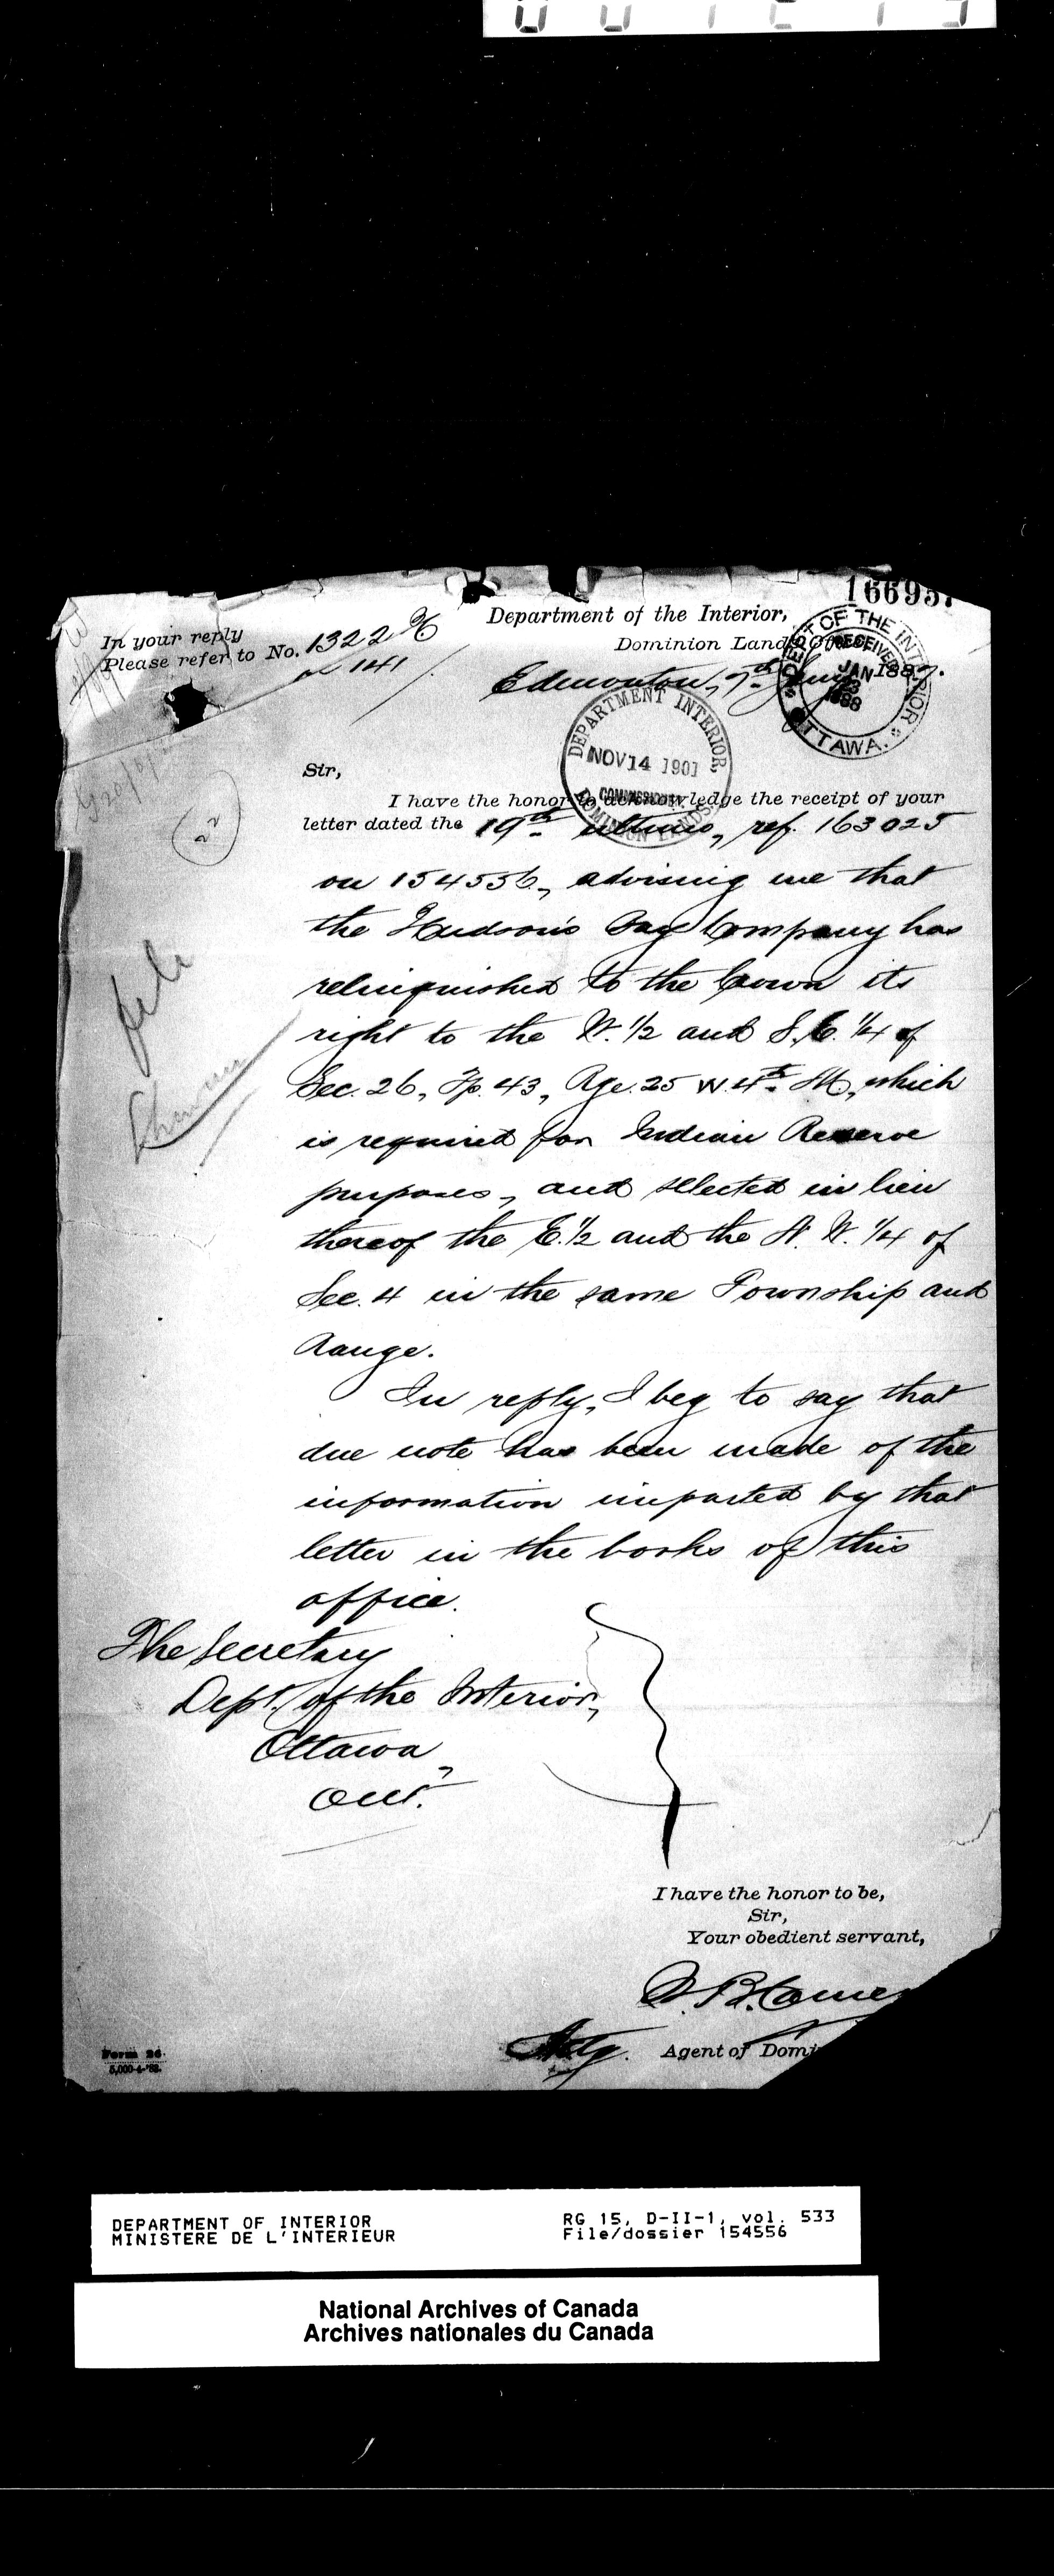 16695
Department of the Interior,
In your reply
Please refer to No. 1322 96
on 141
Dominion Lands Office
Edmonton, 7th Jany 1887.
DEPT OF THE INTERIOR
RECEIVED
JAN 23 1888
OTTAWA.
DEPARTMENT INTERIOR,
NOV 14 1901
COMMISSIONER
DOMINION LANDS
22
Sir,
I have the honor to acknowledge the receipt of your
letter dated the 19th ultimo, ref. 163025
on 154556, advising me that
the Hudson's Bay Company has
relinquished to the Crown its
right to the W. 1/2 and S.E. 1/4 of
Sec. 26, Tp. 43, Rge. 25 W. 4th M., which
is required for Indian Reserve
purposes, and selected in lieu
thereof the E. 1/2 and the N. W. 1/4 of
Sec. 4 in the same Township and
Range.
In reply, I beg to say that
due note has been made of the
information imparted by that
letter in the books of this
office.
The Secretary
Dept. of the Interior,
Ottawa,
Ont.
I have the honor to be,
Sir,
Your obedient servant,
Actg. Agent of Domi
Form 26.
5,000-4-'82.
DEPARTMENT OF INTERIOR
MINISTERE DE L'INTERIEUR
RG 15, D-II-1, vol. 533
File/dossier 154556
National Archives of Canada
Archives nationales du Canada